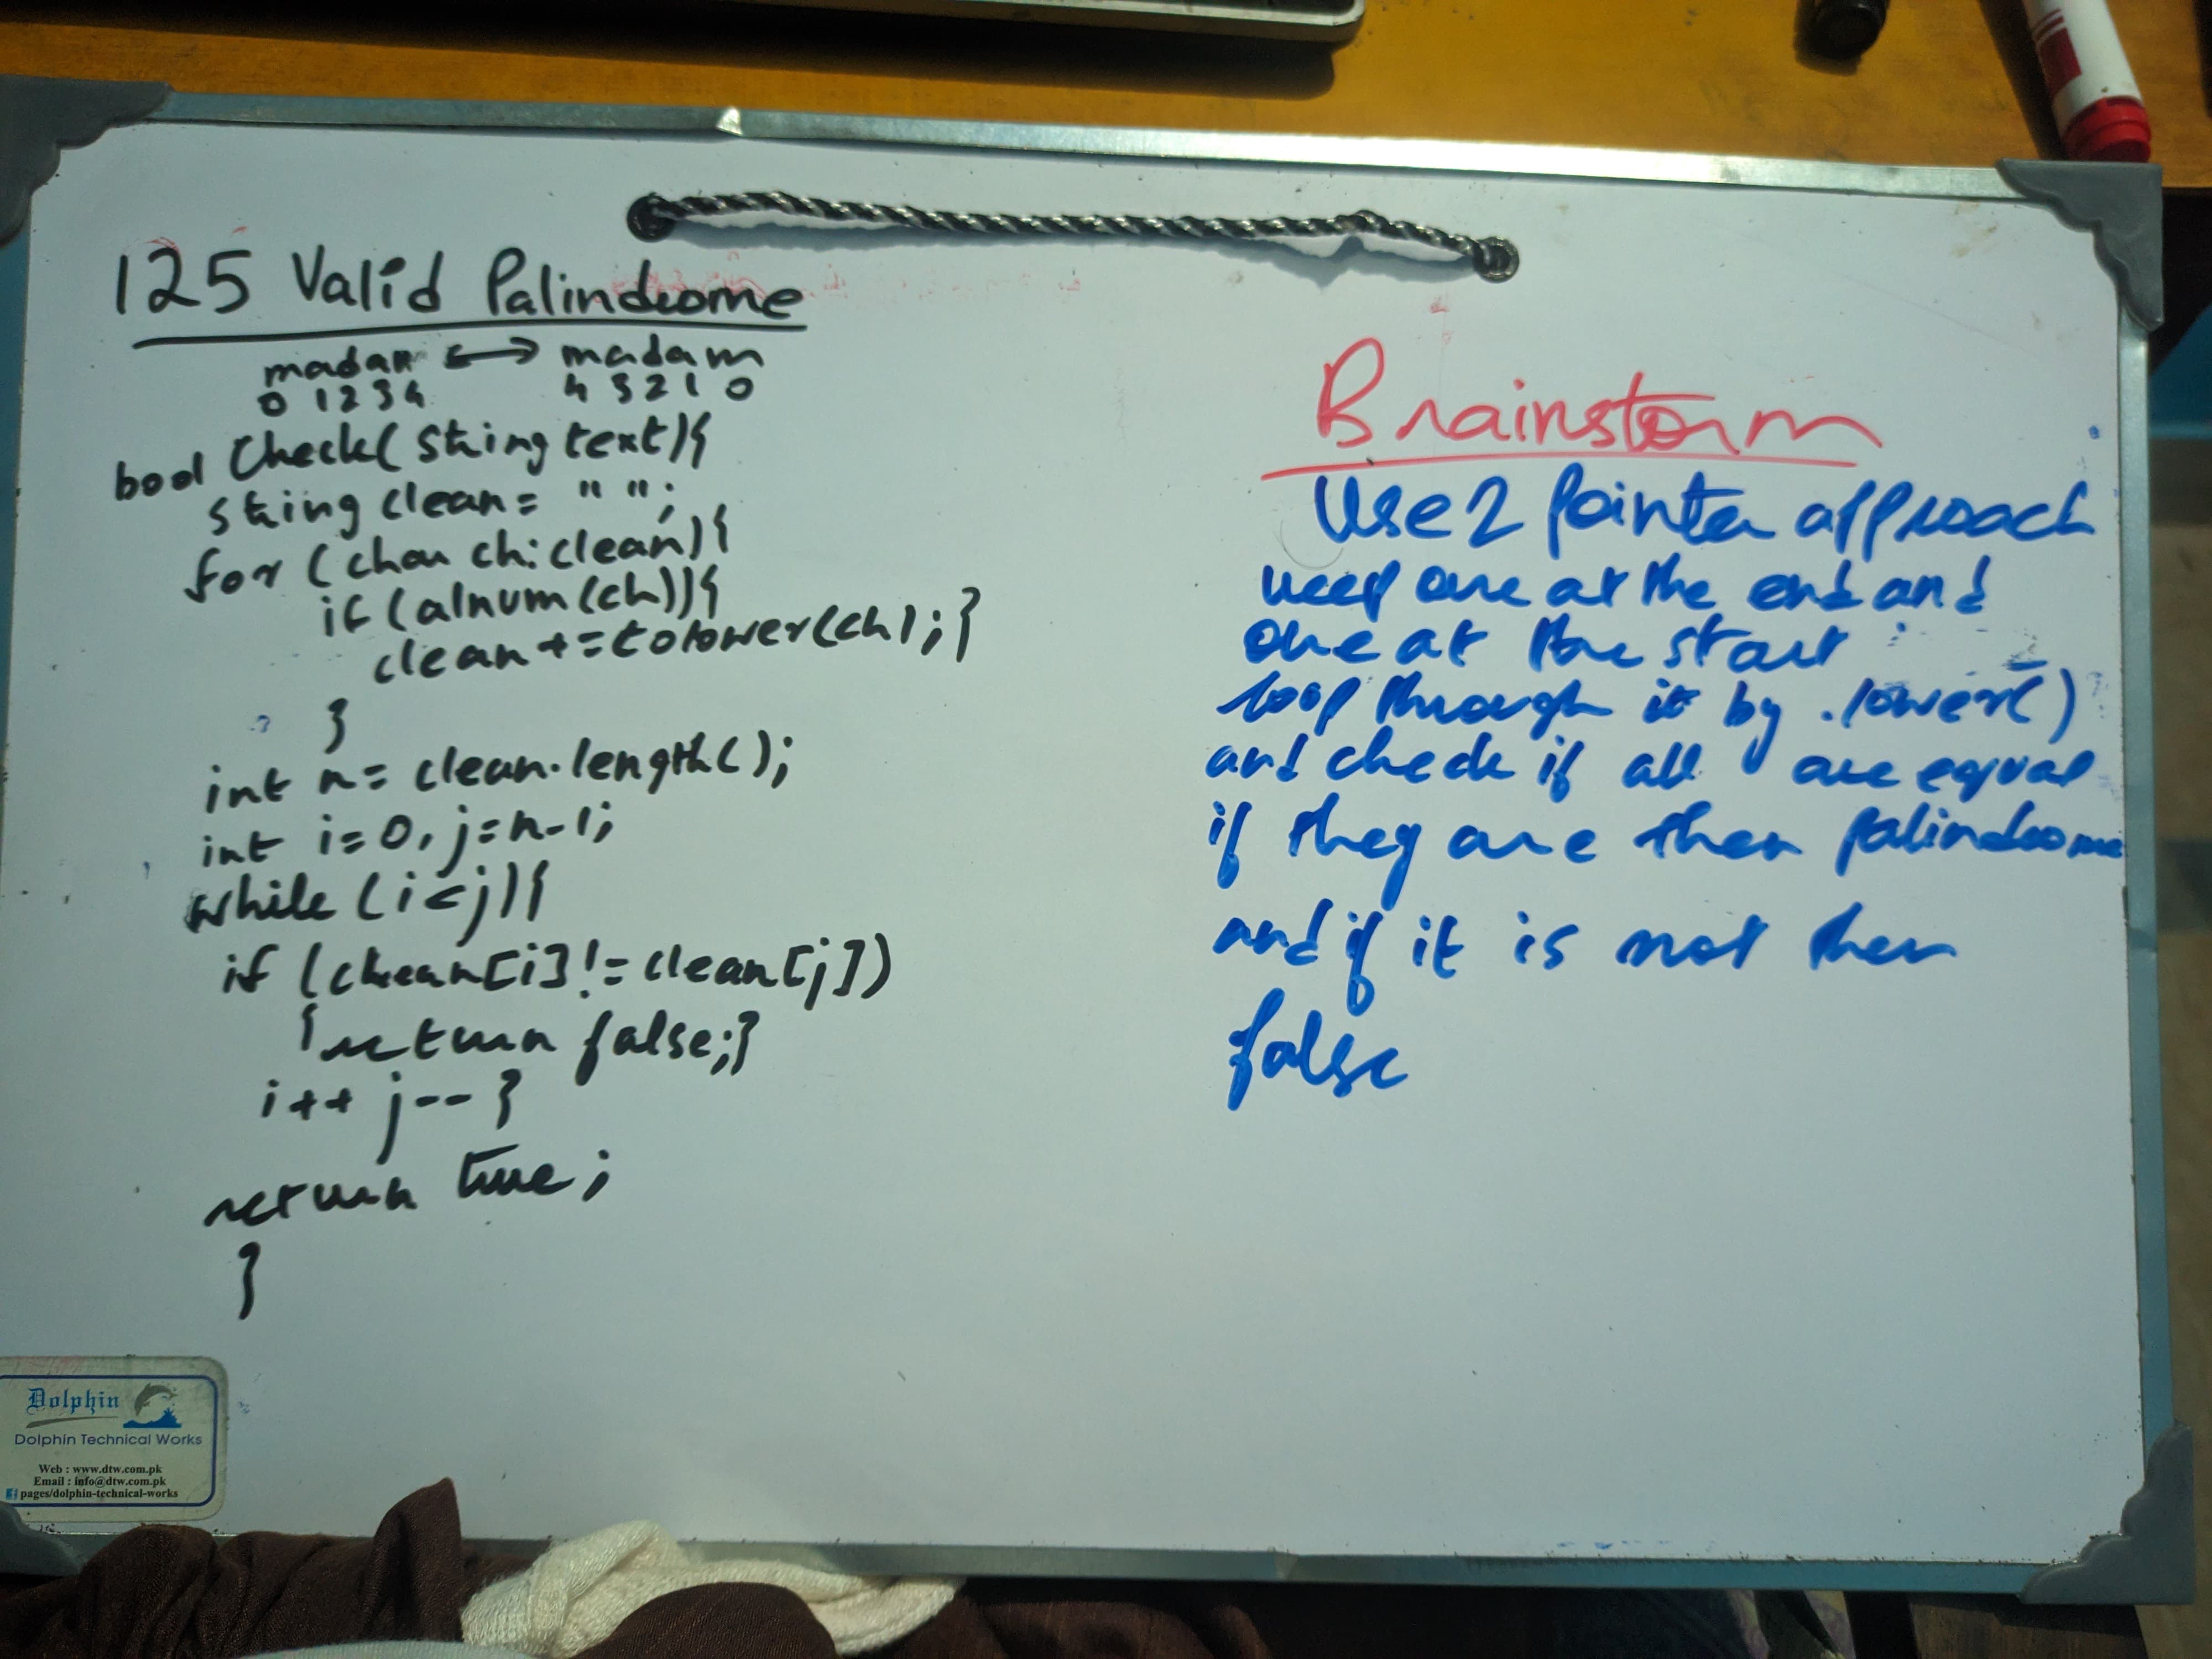 125 Valid Palindrome
madam ↔ madam
0 1 2 3 4 4 3 2 1 0
bool Check(string text){
string clean = " ";
for (char ch:clean){
if (alnum(ch)){
clean += tolower(ch);}
}
int n= clean.length();
int i=0, j=n-1;
while (i<j){
if (clean[i]!=clean[j])
{return false;}
i++ j-- }
return true;
}
Brainstorm
Use 2 Pointer approach
keep one at the end and
one at the start
loop through it by .lower()
and check if all are equal
if they are then palindrome
and if it is not then
false
Dolphin
Dolphin Technical Works
Web : www.dtw.com.pk
Email : info@dtw.com.pk
pages/dolphin-technical-works